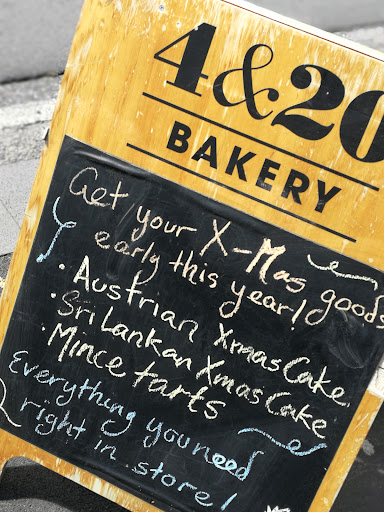 4&20
BAKERY
Get your X-Mas goods
early this year!
· Austrian Xmas Cake
· Sri Lankan Xmas Cake
· Mince tarts
Everything you need
right in store!